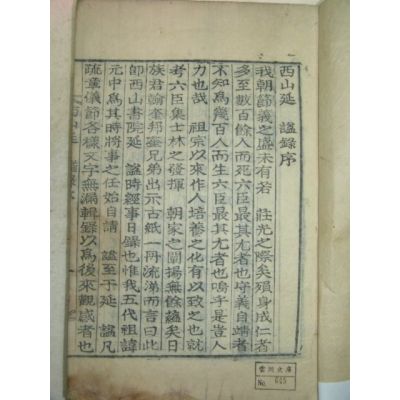 西山延 諡錄序
我朝節義之盛未有若 莊光之際矣殞身成仁者
多至數百餘人而死六臣最其尤者也守義自靖者
不知爲幾百人而生六臣最其尤者也嗚乎是豈人
力也哉 祖宗以來作人培養之化有以致之也故
考六臣集士林之發揮 朝家之闡揚無餘蘊矣日
族君翰奎邦彙兄弟出示古紙一冊流涕而言曰此
卽西山書院延 諡時經事日錄也惟我五代祖諱
元中爲其時將事之任始自請 諡至于延 諡凡
疏章儀節各樣文字無漏輯錄以爲後來觀感者也
西山延 諡錄序 一
雲川文庫
No. 645